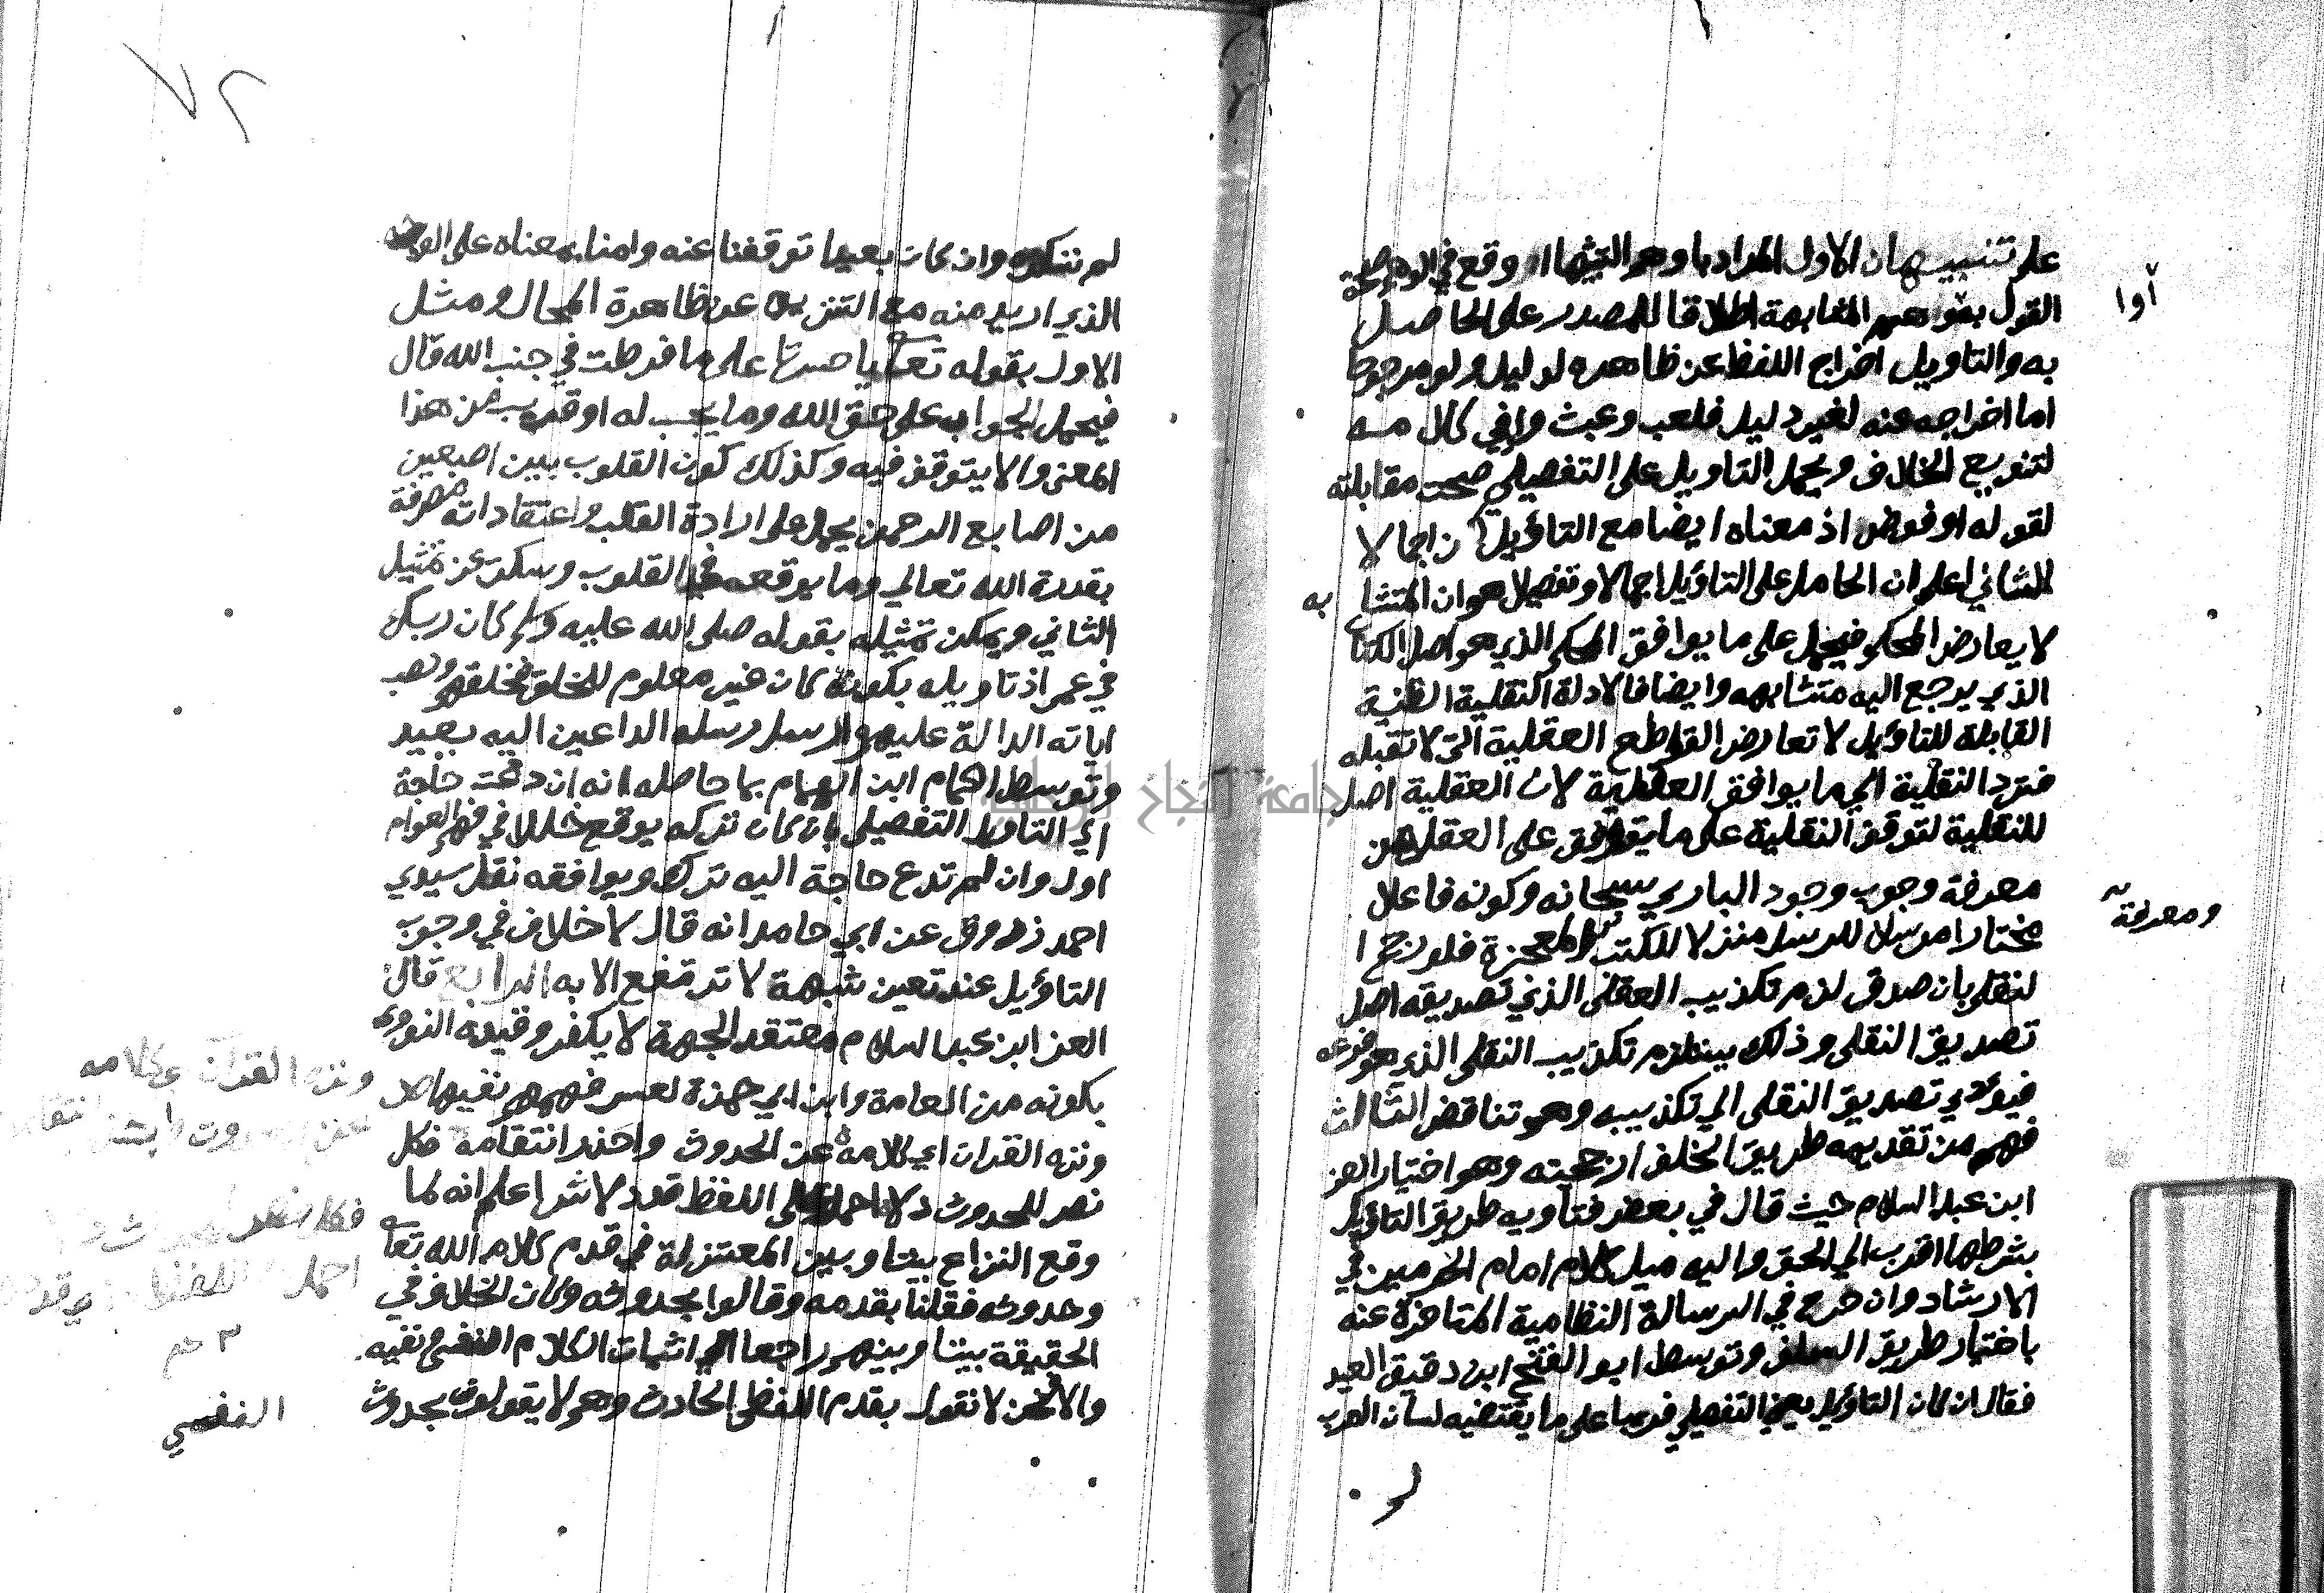 على تنبيهان الاول المراد با وهو التشبيها او وقع في
القول بتوهم المشابهة اطلاقا للمصدر على الحاصل
به والتاويل اخراج اللفظ عن ظاهره لدليل ولو مرجوحا
اما اخراجه عنه لغير دليل فلعب وعبث واو في كلامه
لتنويع الخلاف ويحمل التاويل على التفصيلي صحت مقابلته
لقوله او فوض اذ معناه ايضا مع التاؤيل اجمالا
الثاني اعلم ان الحامل على التاؤيل اجمالا وتفصيلا هو ان المتشابه
لا يعارض المحكم فيحمل على ما يوافق المحكم الذي هو اصل الكتا
الذي يرجع اليه متشابهه وايضا فالادلة النقلية الظنية
القابلة للتاؤيل لا تعارض القواطع العقلية التي لا تقبله
فترد النقلية الي ما يوافق العقلية لان العقلية اصل
للنقلية لتوقف النقلية على ما يتوقف على العقل من
معرفة وجوب وجود الباري سبحانه وكونه فاعلا
مختارا مرسلا للرسل منزلا للكتب والمعجزة فلو رجح ا
لنقلي بان صدق لزم تكذيب العقلي الذي تصديقه اصل
تصديق النقلي وذلك يستلزم تكذيب النقلي الذي هو فرعه
فيؤدي تصديق النقلي الي تكذيبه وهو تناقض الثالث
فهم من تقديمه طريق الخلف ارجحيته وهو اختيار العز
ابن عبد السلام حيث قال في بعض فتاويه طريق التاؤيل
بشرطها اقرب الي الحق واليه ميل كلام امام الحرمين في
الارشاد وان صرح في الرسالة النظامية المتاخرة عنه
باختيار طريق السلف وتوسط ابو الفتح ابن دقيق العيد
فقال ان كان التاؤيل يعني التفصيلي قريبا على ما يقتضيه لسان العرب
اوا
ومعرفة
لم
٧٢
لم ننكره وان كان بعيدا توقفنا عنه وامنا بمعناه على الوجه
الذي اريد منه مع التنزيه عن ظاهره المحال ومثل
الاول بقوله تعالى يا حسرتا على ما فرطت في جنب الله قال
فيحمل الجواب على حق الله وما يجب له او قريب من هذا
المعنى والا يتوقف فيه وكذلك كون القلوب بين اصبعين
من اصابع الرحمن يحمل على ارادة القلب واعتقاداته مصرفة
بقدرة الله تعالى وما يوقعه في القلوب وسكت عن تمثيل
الثاني ويمكن تمثيله بقوله صلى الله عليه وسلم كان ربك
في عمى اذ تاويله بكونه كان غير معلوم للخلق فخلقهم ونصب
اياته الدالة عليه وارسل رسله الداعين اليه بعيد
وتوسط الهمام ابن الهمام بما حاصله انه ان دعت حاجة
الي التاويل التفصيلي بان كان تركه يوقع خللا في فهم العوام
اول وان لم تدع حاجة اليه ترك ويوافقه نقل سيدي
احمد زروق عن ابي حامد انه قال لا خلاف في وجوب
التاؤيل عند تعين شبهة لا ترتفع الا به الرابع قال
العز ابن عبد السلام معتقد الجهة لا يكفر وقيده النووي
بكونه من العامة وابن ابي جمزة لعسر فهمهم نفيها ص
ونزه القران اي كلامه عن الحدوث واحذر انتقامه فكل
نص للحدوث دلا احمل على اللفظ قد دلا ش اعلم انه لما
وقع النزاع بيننا وبين المعتزلة في قدم كلام الله تعا
وحدوثه فقلنا بقدمه وقالوا بحدوثه وكان الخلاف في
الحقيقة بيننا وبينهم راجعا الي اثبات الكلام النفسي ونفيه
والا فنحن لا نقول بقدم اللفظي الحادث وهم لا يقولون بحدوث
ونزه القران عكلامه
احمل
النفسي